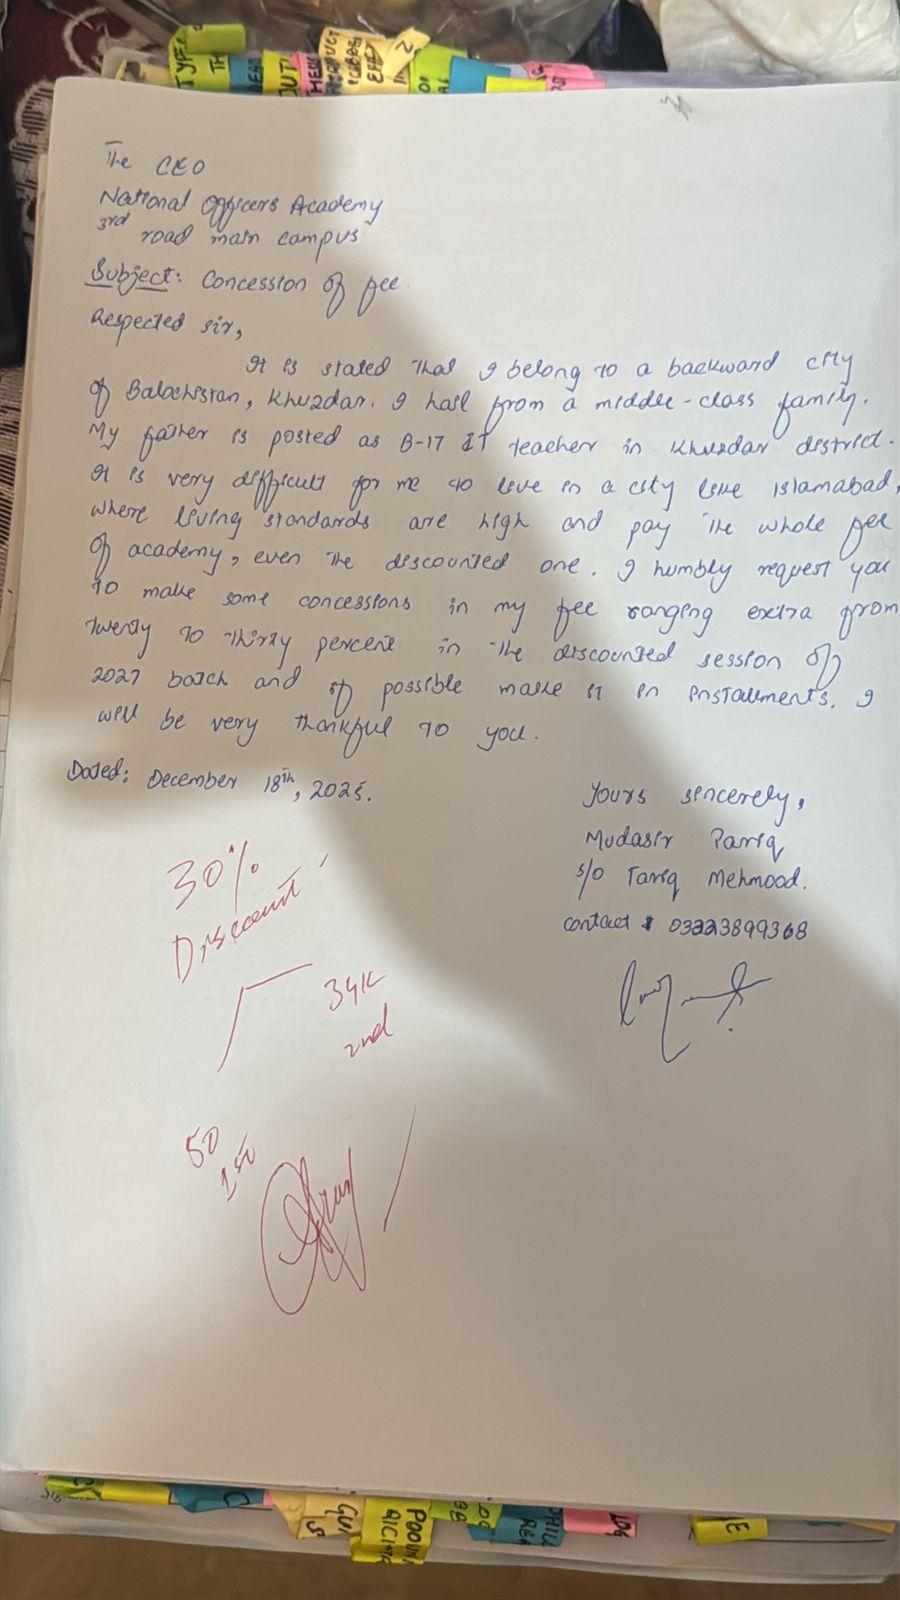 TYPE
TH
OUT
The CEO
National Officers Academy
3rd road main campus
Subject: Concession of fee.
Respected sir,
It is stated that I belong to a backward city
of Balochistan, Khuzdar. I hail from a middle-class family.
My father is posted as B-17 IT teacher in Khuzdar district.
It is very difficult for me to live in a city like Islamabad,
where living standards are high and pay the whole fee
of academy, even the discounted one. I humbly request you
to make some concessions in my fee ranging extra from
twenty to thirty percent in the discounted session of
2027 batch and if possible make it in installments. I
will be very thankful to you.
Dated: December 18th, 2025.
Yours sincerely,
Mudasir Tariq
s/o Tariq Mehmood.
contact # 03223899368
30%
Discount
34K
2nd
50
1st